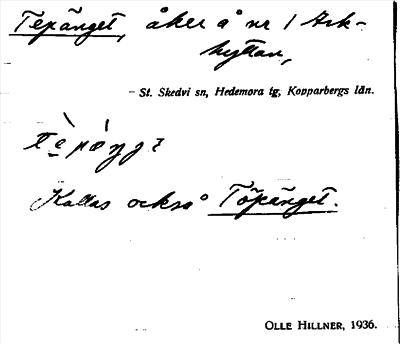 Tepänget, åker å nr 1 Ark-
hyttan,
- St. Skedvi sn, Hedemora tg, Kopparbergs län.
Kallas också Töpänget.
OLLE HILLNER, 1936.